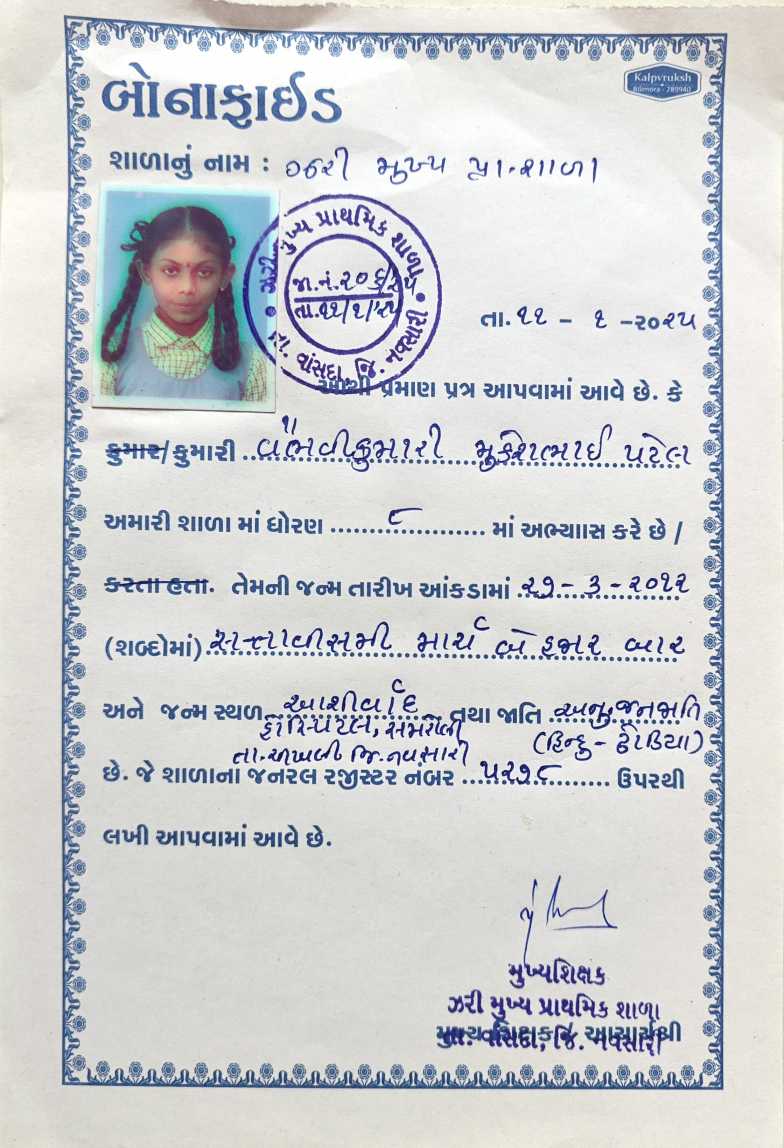 Kalpvruksh
Bilimora - 289940
બોનાફાઈડ
શાળાનું નામ : ઝરી મુખ્ય પ્રા.શાળા
ઝરી મુખ્ય પ્રાથમિક શાળા
જા.નં.૨૦૬/૨૫
તા.૧૧/૧/૨૫
તા. વાંસદા, જિ. નવસારી
તા. ૧૧ - ૧ -૨૦૨૫
આથી પ્રમાણ પત્ર આપવામાં આવે છે. કે
કુમાર/કુમારી ..વૈભવીકુમારી મુકેશભાઈ પટેલ
અમારી શાળા માં ધોરણ ......૮......... માં અભ્યાાસ કરે છે /
કરતા હતા. તેમની જન્મ તારીખ આંકડામાં .૨૭-.૩.-૨૦૧૨
(શબ્દોમાં) સત્તાવીસમી માર્ચ બે હજાર બાર
અને જન્મ સ્થળ આશીર્વાદ તથા જાતિ અનુ.જનજાતિ
હોસ્પિટલ, સમરોલી (હિન્દુ - ઢોડિયા)
તા.ચીખલી જિ.નવસારી
છે. જે શાળાના જનરલ રજીસ્ટર નંબર ...૫૨૭૮......... ઉપરથી
લખી આપવામાં આવે છે.
મુખ્યશિક્ષક
ઝરી મુખ્ય પ્રાથમિક શાળા
તા. વાંસદા, જિ. નવસારી